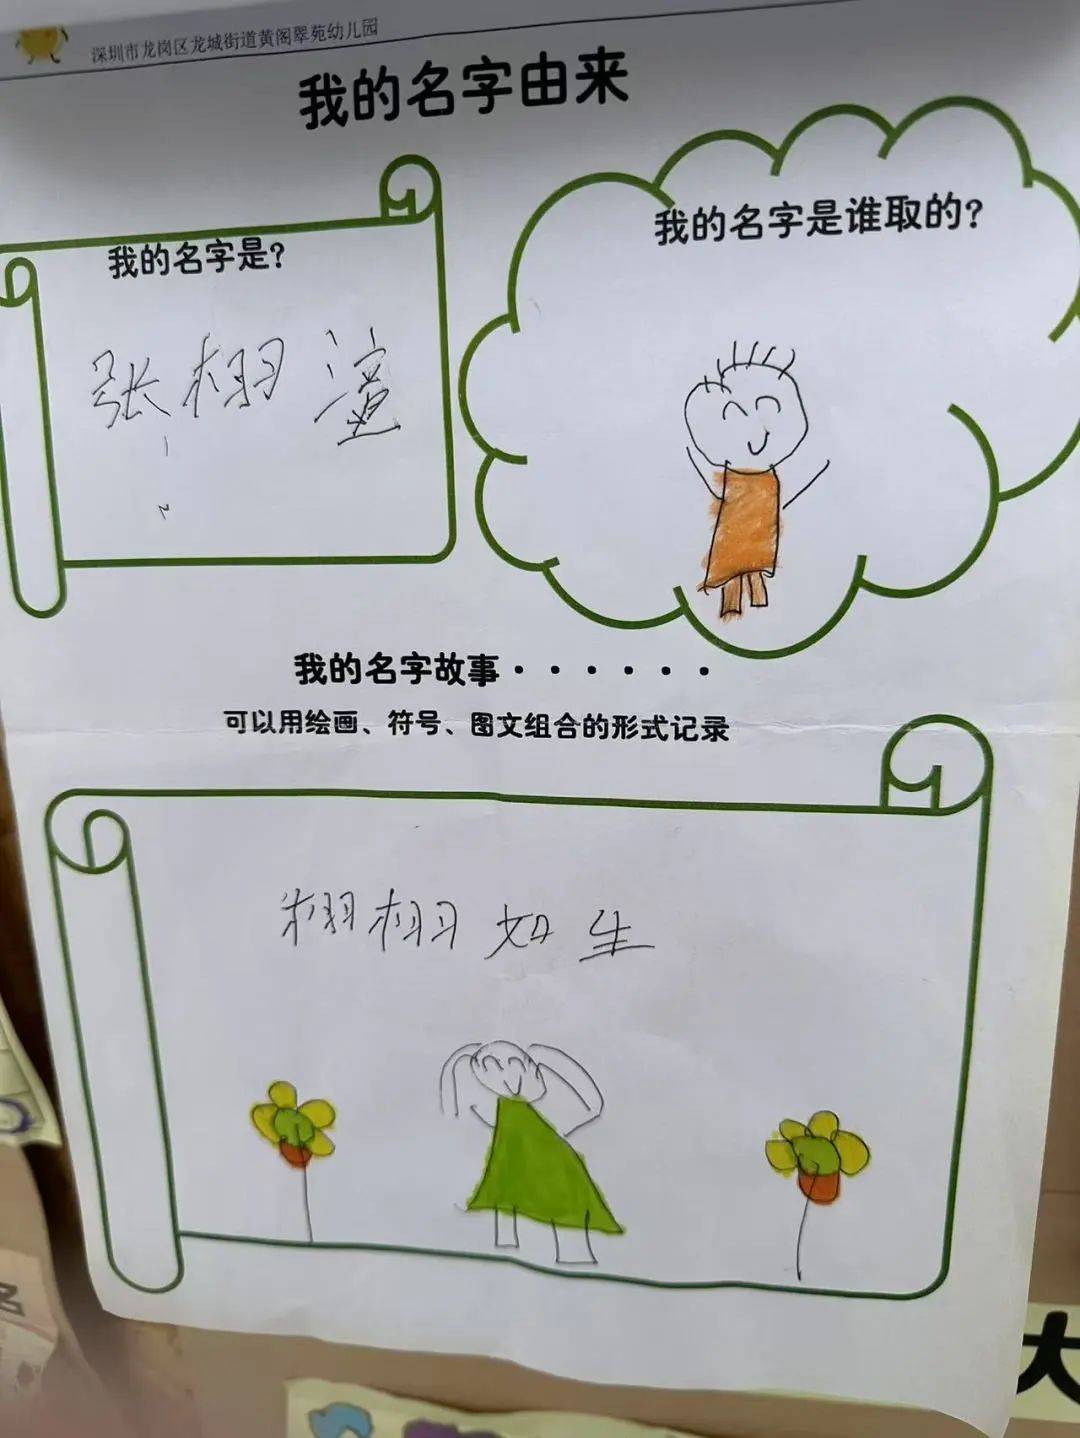 深圳市龙岗区龙城街道黄阁翠苑幼儿园
我的名字由来
我的名字是?
张栩
我的名字是谁取的?
我的名字故事······
可以用绘画、符号、图文组合的形式记录
栩栩如生
大